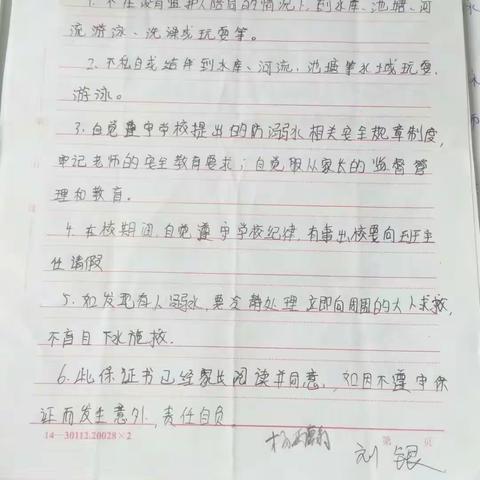 1. 不在没有监护人陪同的情况下,到水库、池塘、河
流游泳、洗澡或玩耍等。
2. 不私自或结伴到水库、河流、池塘等水域玩耍、
游泳。
3. 自觉遵守学校提出的防溺水相关安全规章制度,
牢记老师的安全教育要求;自觉服从家长的监督管
理和教育。
4. 在校期间,自觉遵守学校纪律,有事出校要向班主
任请假
5. 如发现有人溺水,要冷静处理,立即向周围的大人求救,
不盲目下水施救.
6. 此保证书已经家长阅读并同意,如因不遵守保
证而发生意外,责任自负
14—30112.20028×2
第 页
刘银